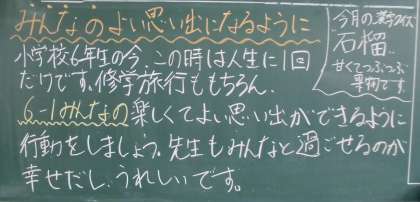 みんなのよい思い出になるように
小学校6年生の今、この時は人生に1回
だけです。修学旅行ももちろん、
6-1みんなの楽しくてよい思い出ができるように
行動をしましょう。先生もみんなと過ごせるのが
幸せだし、うれしいです。
今月の漢字クイズ
石榴
甘くてつぶつぶ
果物です